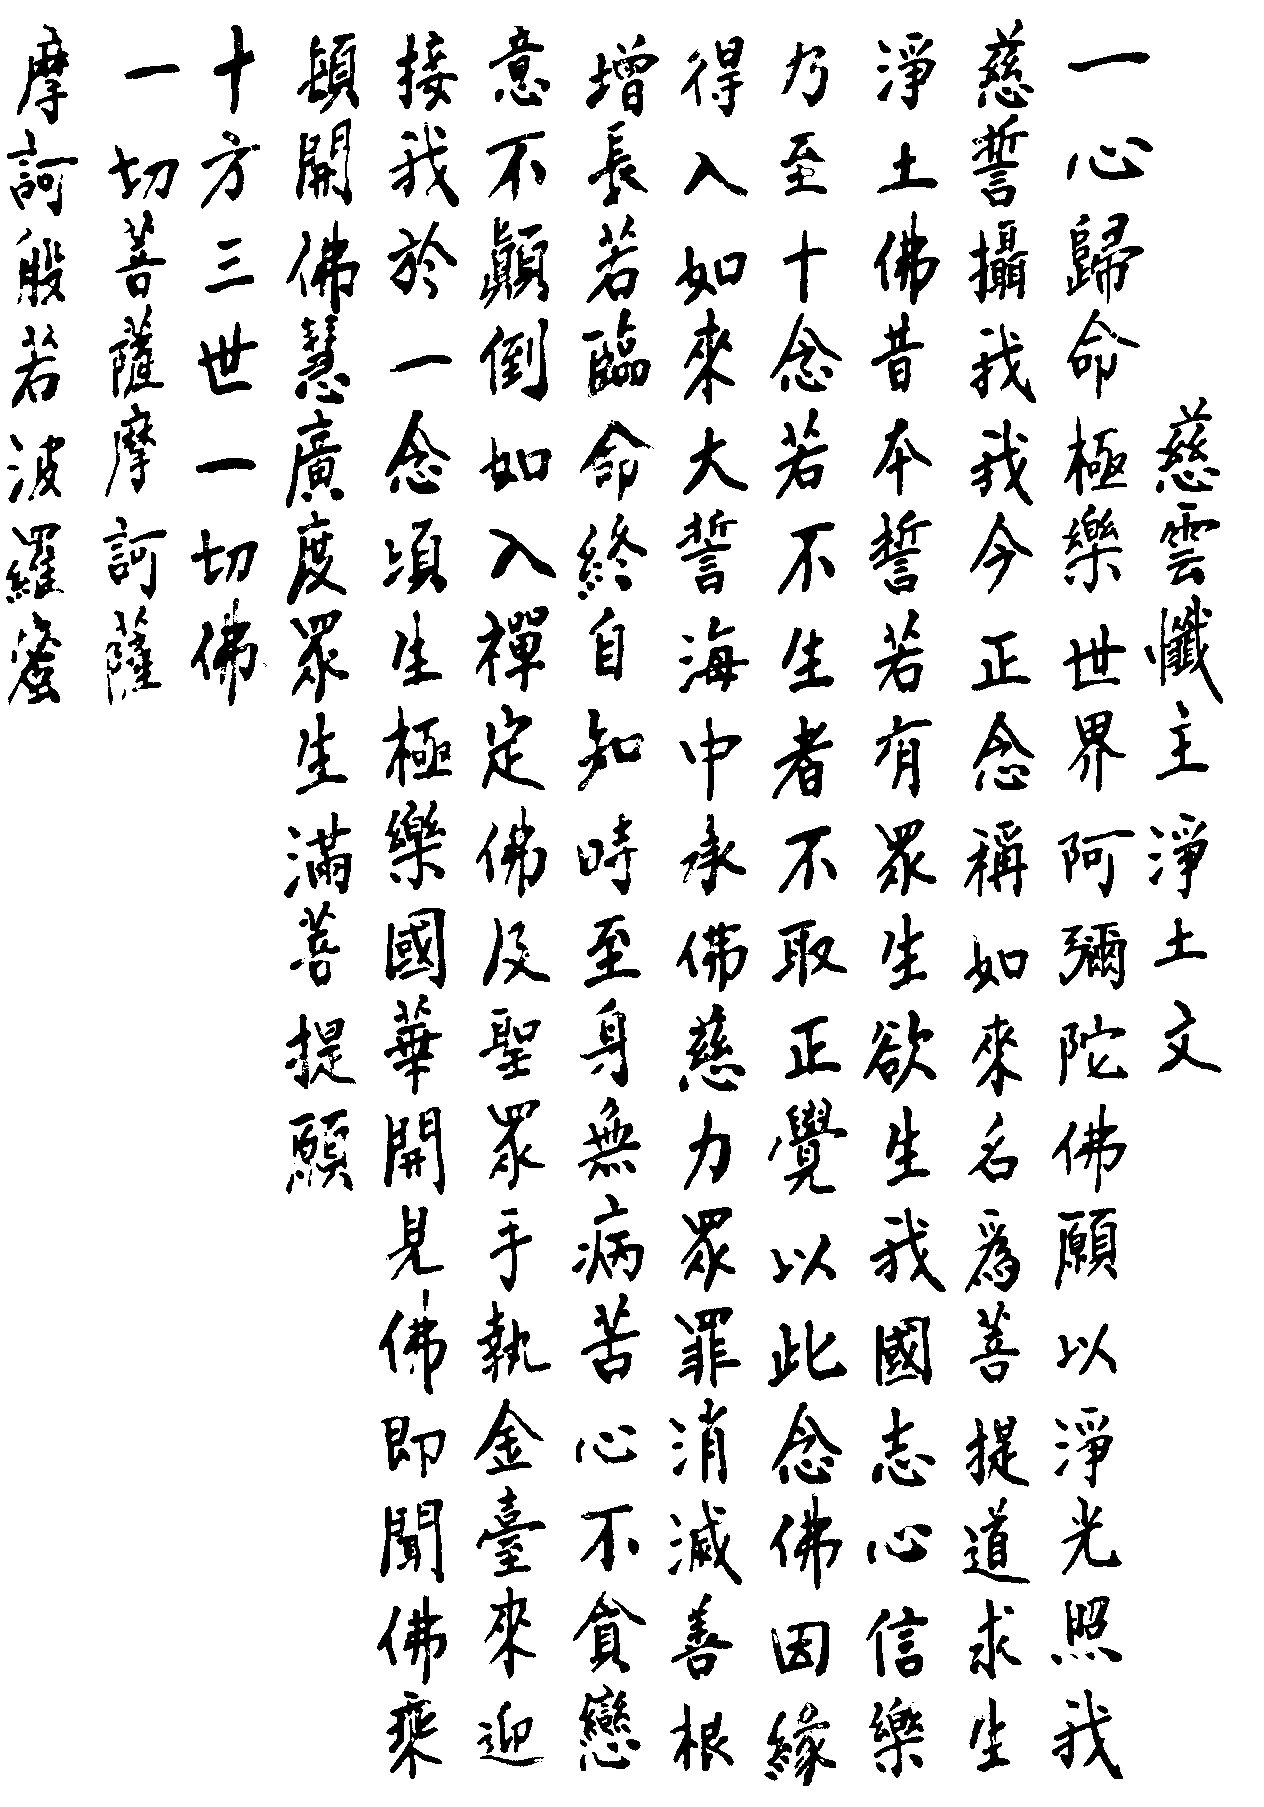 慈雲懺主淨土文
一心歸命極樂世界阿彌陀佛願以淨光照我
慈誓攝我我今正念稱如來名爲菩提道求生
淨土佛昔本誓若有眾生欲生我國志心信樂
乃至十念若不生者不取正覺以此念佛因緣
得入如來大誓海中承佛慈力眾罪消滅善根
增長若臨命終自知時至身無病苦心不貪戀
意不顛倒如入禪定佛及聖眾手執金臺來迎
接我於一念頃生極樂國華開見佛即聞佛乘
頓開佛慧廣度眾生滿菩提願
十方三世一切佛
一切菩薩摩訶薩
摩訶般若波羅蜜